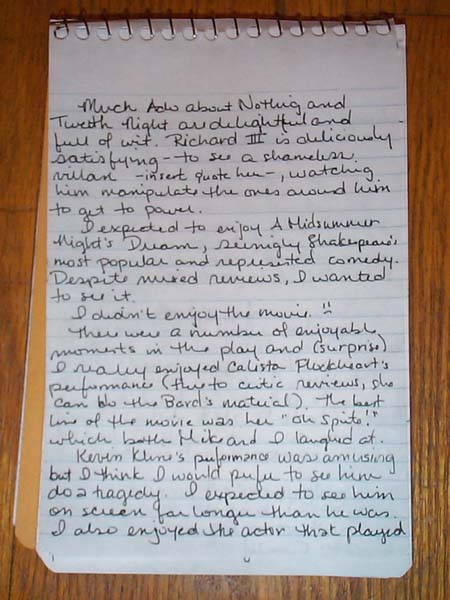 Much Ado about Nothing and
Twelth Night are delightful and
full of wit. Richard III is deliciously
satisfying - to see a shameless
villan - insert quote her -, watching
him manipulate the ones around him
to get to power.
I expected to enjoy A Midsummer
Night's Dream, seemigly Shakespeare's
most popular and represented comedy.
Despite mixed reviews, I wanted
to see it.
I didn't enjoy the movie.
There were a number of enjoyable
moments in the play and (surprise)
I really enjoyed Calista Flockheart's
performance (true to critic reviews, she
can do the Bard's material). The best
line of the movie was her "oh spite!"
which both Mike and I laughed at.
Kevin Kline's performance was amusing
but I think I would prefer to see him
do a tragedy. I expected to see him
on screen far longer than he was.
I also enjoyed the actor that played